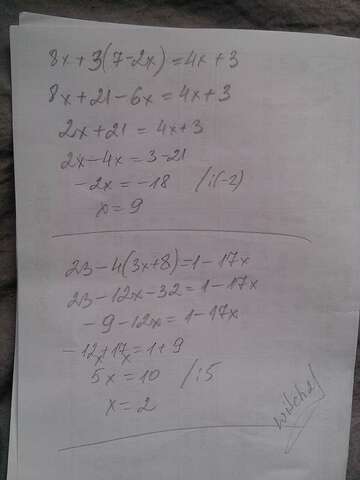 8x+3(7-2x)=4x+3
8x+21-6x=4x+3
2x+21=4x+3
2x-4x=3-21
-2x=-18 /:(-2)
x=9
23-4(3x+8)=1-17x
23-12x-32=1-17x
-9-12x=1-17x
-12x+17x=1+9
5x=10 /:5
x=2
witch24